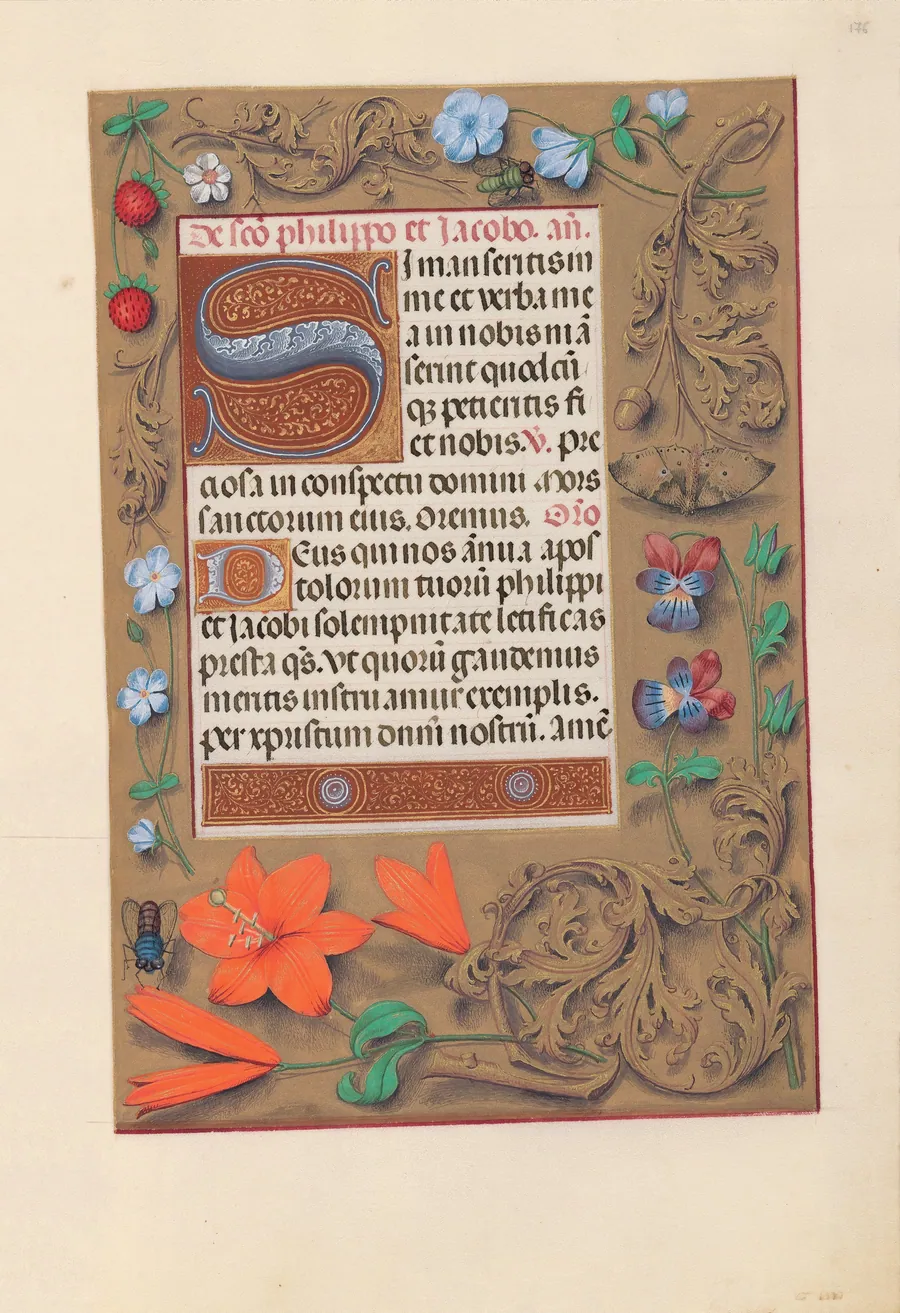 176
De scō philippo et Jacobo. añ.
SI manseritis in
me et verba me
a in nobis mā
serint quodcū
qꝫ petieritis fi
et nobis. V̄. Pre
ciosa in conspectu domini mors
sanctorum eius. Oremus. Orō
DEus qui nos ānua apos
tolorum tuorū philippi
et Jacobi solempnitate letificas
presta qs̄. vt quorū gaudemus
meritis instruamur exemplis.
per xpristum dnm̄ nostrū. Amē